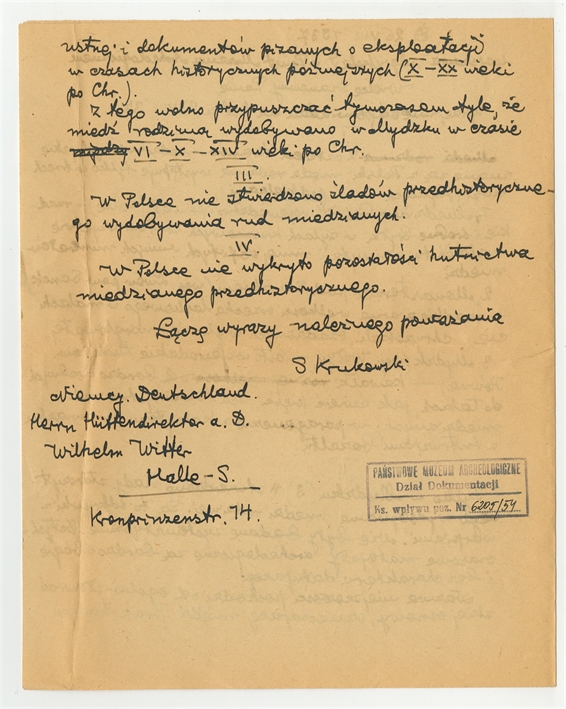 ustnej i dokumentów pisanych o eksploatacji
w czasach historycznych późniejszych (X–XX wieki
po Chr.).
Z tego wolno przypuszczać tymczasem tyle, że
miedź rodzimą wydobywano w Mydzku w czasie
VI – X – XIV wieki po Chr.
III.
W Polsce nie stwierdzono śladów przedhistoryczne-
go wydobywania rud miedzianych.
IV
W Polsce nie wykryto pozostałości hutnictwa
miedzianego przedhistorycznego.
Łączę wyrazy należnego poważania
S Krukowski
Niemcy. Deutschland.
Herrn Hüttendirektor a. D.
Wilhelm Witter
Halle – S.
Kronprinzenstr. 74.
PAŃSTWOWE MUZEUM ARCHEOLOGICZNE
Dział Dokumentacji
Ks. wpływu poz. Nr 6205/54